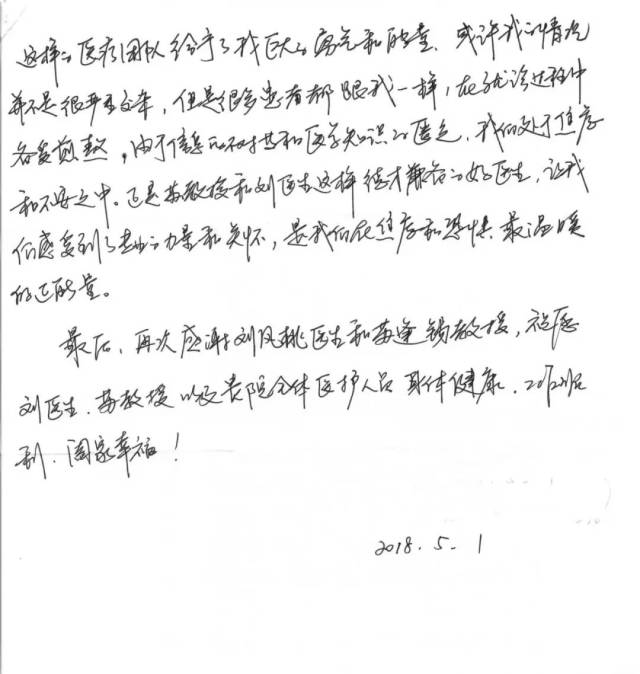 这样的医疗团队给予了我巨大的勇气和能量。或许我的情况
并不是很严重复杂，但是很多患者都跟我一样，在就诊过程中
备受煎熬，由于信息的不对称和医学知识的匮乏，我们处于焦虑
和不安之中。正是苏教授和刘医生这样德才兼备的好医生，让我
们感受到了专业的力量和关怀，是我们在焦虑和恐惧最温暖
的正能量。
最后，再次感谢刘凤桃医生和苏逢锡教授，祝愿
刘医生、苏教授以及贵院全体医护人员身体健康，工作顺
利，阖家幸福！
2018.5.1